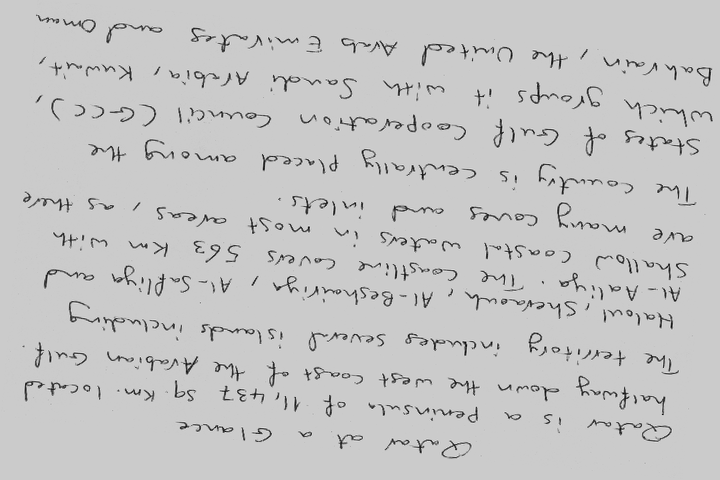 Qatar at a Glance
Qatar is a peninsula of 11,437 sq. km. located
halfway down the west coast of the Arabian Gulf.
The territory includes several islands including
Haloul, Sheraouh, Al-Beshairiya, Al-Safliya and
Al-Aaliya. The coastline covers 563 km with
shallow coastal waters in most areas, as there
are many coves and inlets.
The country is centrally placed among the
States of Gulf Cooperation Council (GCC),
which groups it with Saudi Arabia, Kuwait,
Bahrain, the United Arab Emirates and Oman